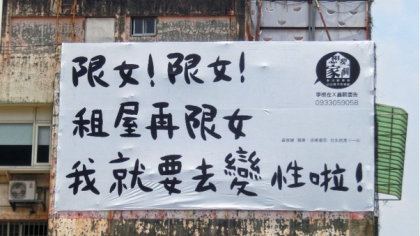 限女!限女!
租屋再限女
我就要去變性啦!
0933059058